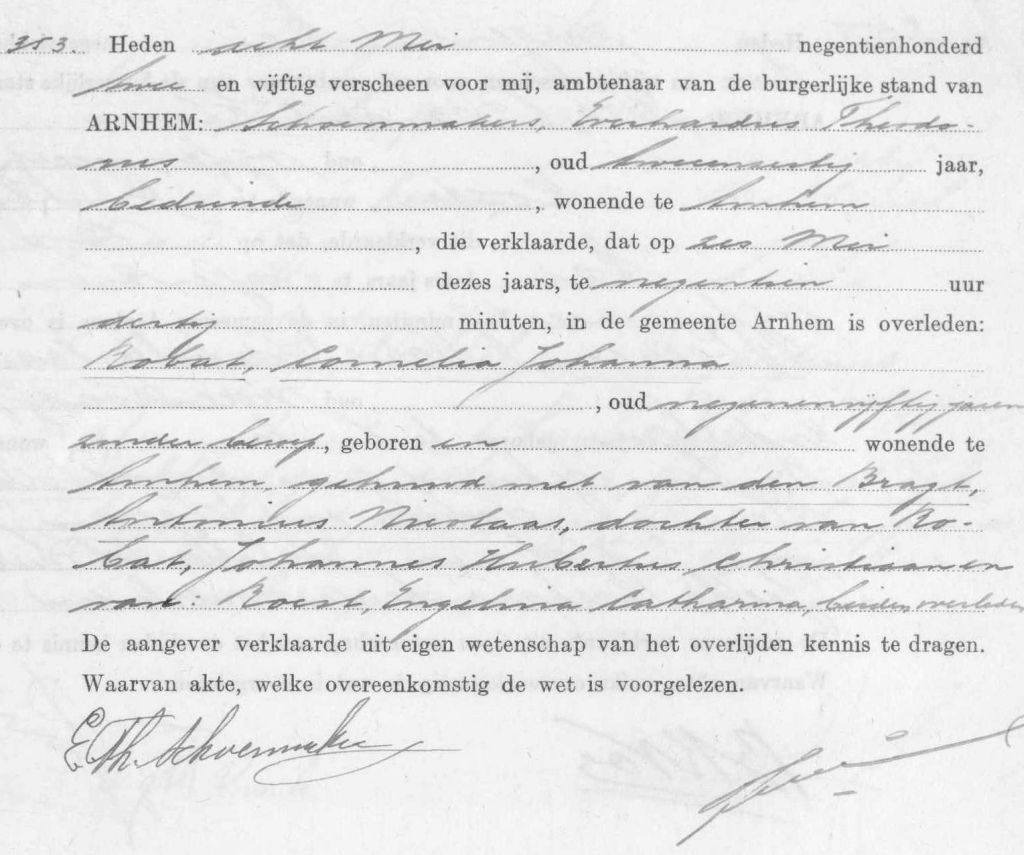 383. Heden acht Mei negentienhonderd
twee en vijftig verscheen voor mij, ambtenaar van de burgerlijke stand van
ARNHEM: Schoenmakers, Everhardus Theodo-
rus , oud tweeenzestig jaar,
bediende , wonende te Arnhem
, die verklaarde, dat op zes Mei
dezes jaars, te negentien uur
dertig minuten, in de gemeente Arnhem is overleden:
Robat, Cornelia Johanna
, oud negenenvijftig jaren
zonder beroep, geboren en wonende te
Arnhem, gehuwd met van den Bragt,
Antonius Nicolaas, dochter van Ro-
bat, Johannes Hubertus Christiaan en
van Roest, Engelina Catharina, beiden overleden
De aangever verklaarde uit eigen wetenschap van het overlijden kennis te dragen.
Waarvan akte, welke overeenkomstig de wet is voorgelezen.
E Th. Schoenmakers